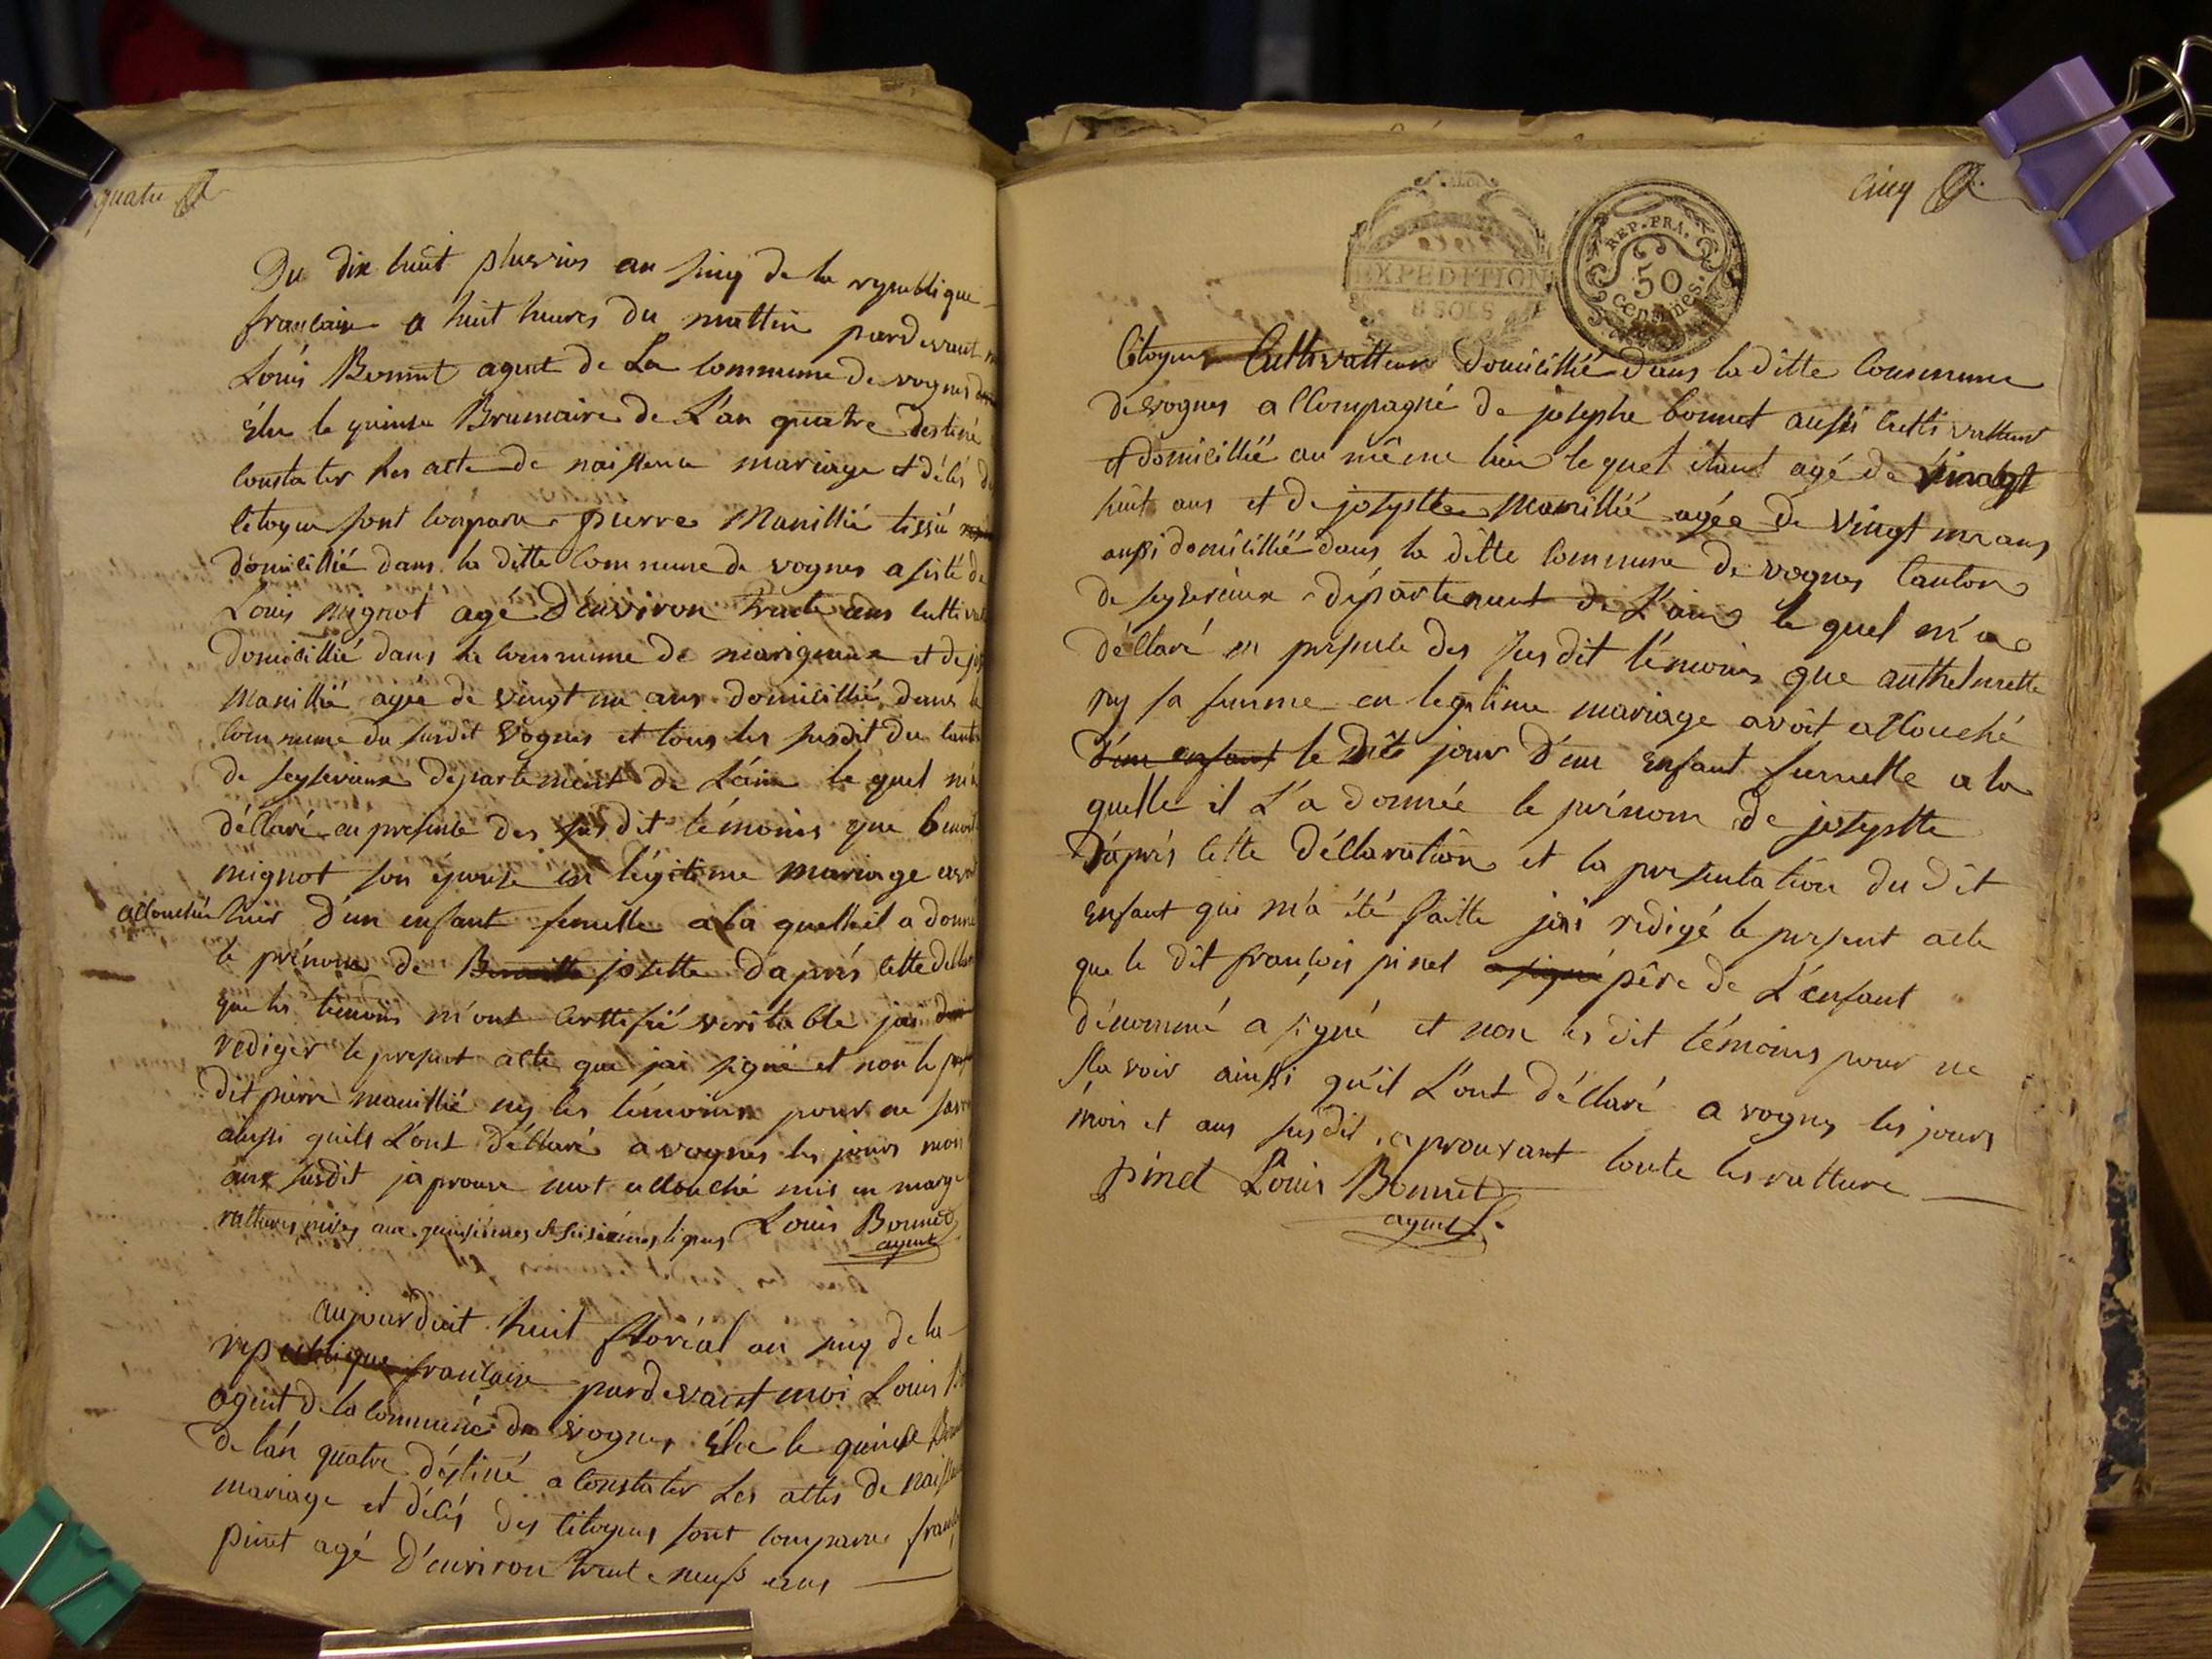 quatre
Du dix huit pluvios an sinq de la republique
francaise a huit heures du mattin pardevant
Louis Bonnet agent de La Commune de vognes
Élu le quinse Brumaire de L'an quatre destiné
Constater Les acte de naissence mariage et déses
Citoyen sont comparu pierre Manillié tissié
domicillié dans la ditte Commune de vognes asisté de
Louis mignot agé D'environ trente ans
domicillié dans la commune de marignieux et de
Manillié agée de vingt un ans domicillié dans la
Commune du susdit vognes et tous les susdit du
de seyserieux département de L'ain le quel m'a
déclaré en presente des susdit témoins que
mignot son épouse en légitime mariage
accouché hier d'un enfant femelle a la quelle il a donné
le prénom de Benoitte josette d'aprés cette
que les temoins m'ont certifié veritable jai
rediger le present acte que jai signé et non le
dit pierre manillié ny les témoins pour ne
ainssi quils L'ont déclaré a vognes les jours mois
ans susdit japrouve mot accouché mis en marge
rattures mises aux quinsièmes et seisièmes lignes Louis Bonnet
agent
aujourduit huit floréal an sinq de la
republique francaise pardevant moi Louis
agent de la commune de vognes Élu le quinse
de l'an quatre déstiné a Constater Les actes de
mariage et décés des citoyens sont comparu
pinet agé D'environ trente neuf ans
Cinq
EXPEDITION
8 SOLS
REP. FRA.
50
Centimes
Citoyens Cultivatteur Domicillié dans la ditte Commune
de vognes accompagné de josephe bonnet aussi Cultivatteur
et domicillié au même lieu lequel étant agé de vinght
huit ans et de josyette Manillié agée de vingt un ans
aussi domicillié dans la ditte Commune de vognes Canton
de seyserieux département de L'ain le quel m'a
déclaré en presente des susdit témoins que anthelmette
ny sa femme en legitime mariage avoit accouché
d'un enfant le dit jour D'un enfant femelle a la
quelle il L'a donnée le prénom de josyette
D'aprés cette déclaration et la presentation du dit
enfant qui m'a été faitte jai redigé le present acte
que le dit francois pinet a signé pêre de L'enfant
dénommé a signé et non les dit témoins pour ne
savoir ainssi qu'il L'ont déclaré a vognes les jours
mois et ans susdit aprouvant toute les ratture
pinet Louis Bonnet
agent